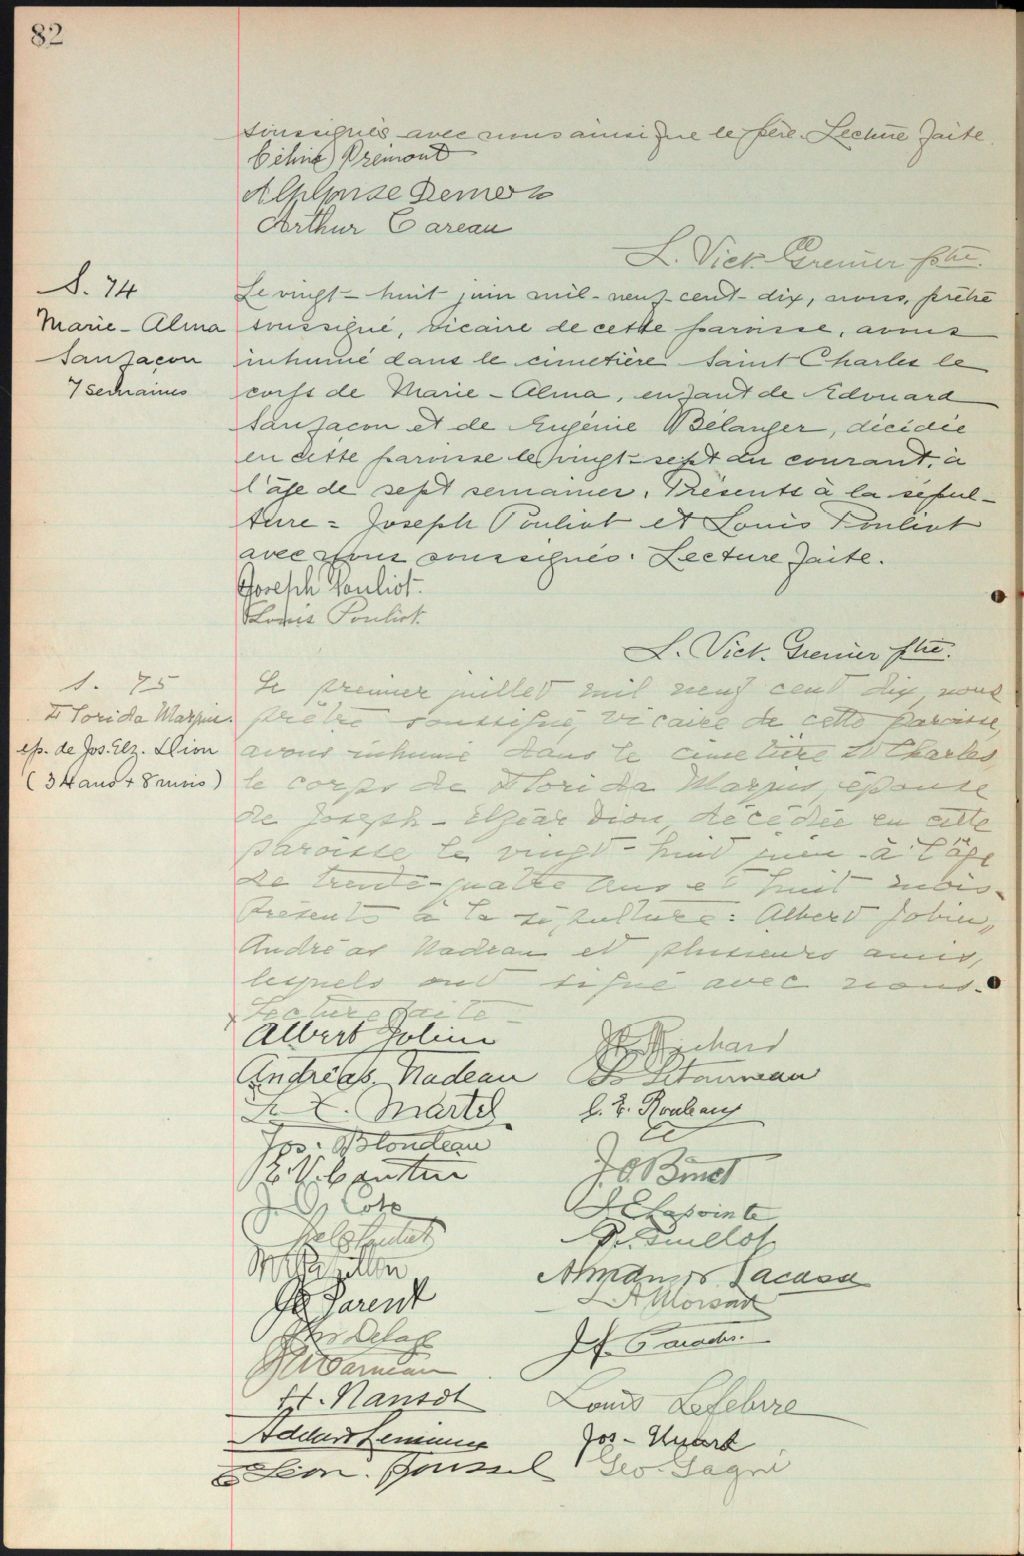 82
soussignés avec nous ainsi que le père. Lecture faite.
Céline Prémont
Alphonse Demers
Arthur Careau
L. Vict. Grenier ptre.
S. 74
Marie-Alma
Sanfaçon
7 semaines
Le vingt-huit juin mil-neuf-cent-dix, nous, prêtre
soussigné, vicaire de cette paroisse, avons
inhumé dans le cimetière Saint Charles le
corps de Marie-Alma, enfant de Edouard
Sanfaçon et de Eugénie Bélanger, décédée
en cette paroisse le vingt-sept du courant, à
l'âge de sept semaines. Présents à la sépul-
ture = Joseph Pouliot et Louis Pouliot
avec nous soussignés. Lecture faite.
Joseph Pouliot.
Louis Pouliot.
L. Vict. Grenier ptre.
S. 75
Florida
ép. de Jos. Elz. Dion
(34 ans + 8 mois)
Le premier juillet mil neuf cent dix, nous
prêtre soussigné, vicaire de cette paroisse,
avons inhumé dans le cimetière St Charles,
le corps de Florida épouse
de Joseph-Elzéar Dion, décédée en cette
paroisse le vingt-huit juin à l'âge
de trente-quatre ans et huit mois.
Présents à la sépulture: Albert Jobin,
Andréas Nadeau et plusieurs amis,
lesquels ont signé avec nous.
Lecture faite
Albert Jobin
Richard
Andréas Nadeau
Letourneau
Martel
Rouleau
Jos. Blondeau
E. V. Cantin
J. O. Binet
J. Coté
J. E. Lapointe
Guillot
Papillon
Lacasse
Parent
L A
Delage
J. Paradis.
Garneau
H. Nansot
Louis Lefebvre
Jos- Huard
Léon. Roussel
Geo. Gagné